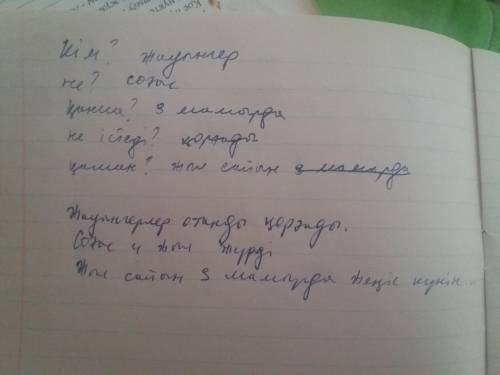 Кім? жауынгер
не? соғыс
қанша? 9 мамырда
не істеді? қорғады
қашан? жыл сайын 9 мамырда
Жауынгерлер отанды қорғады.
Соғыс 4 жыл жүрді
Жыл сайын 9 мамырда Жеңіс күнін